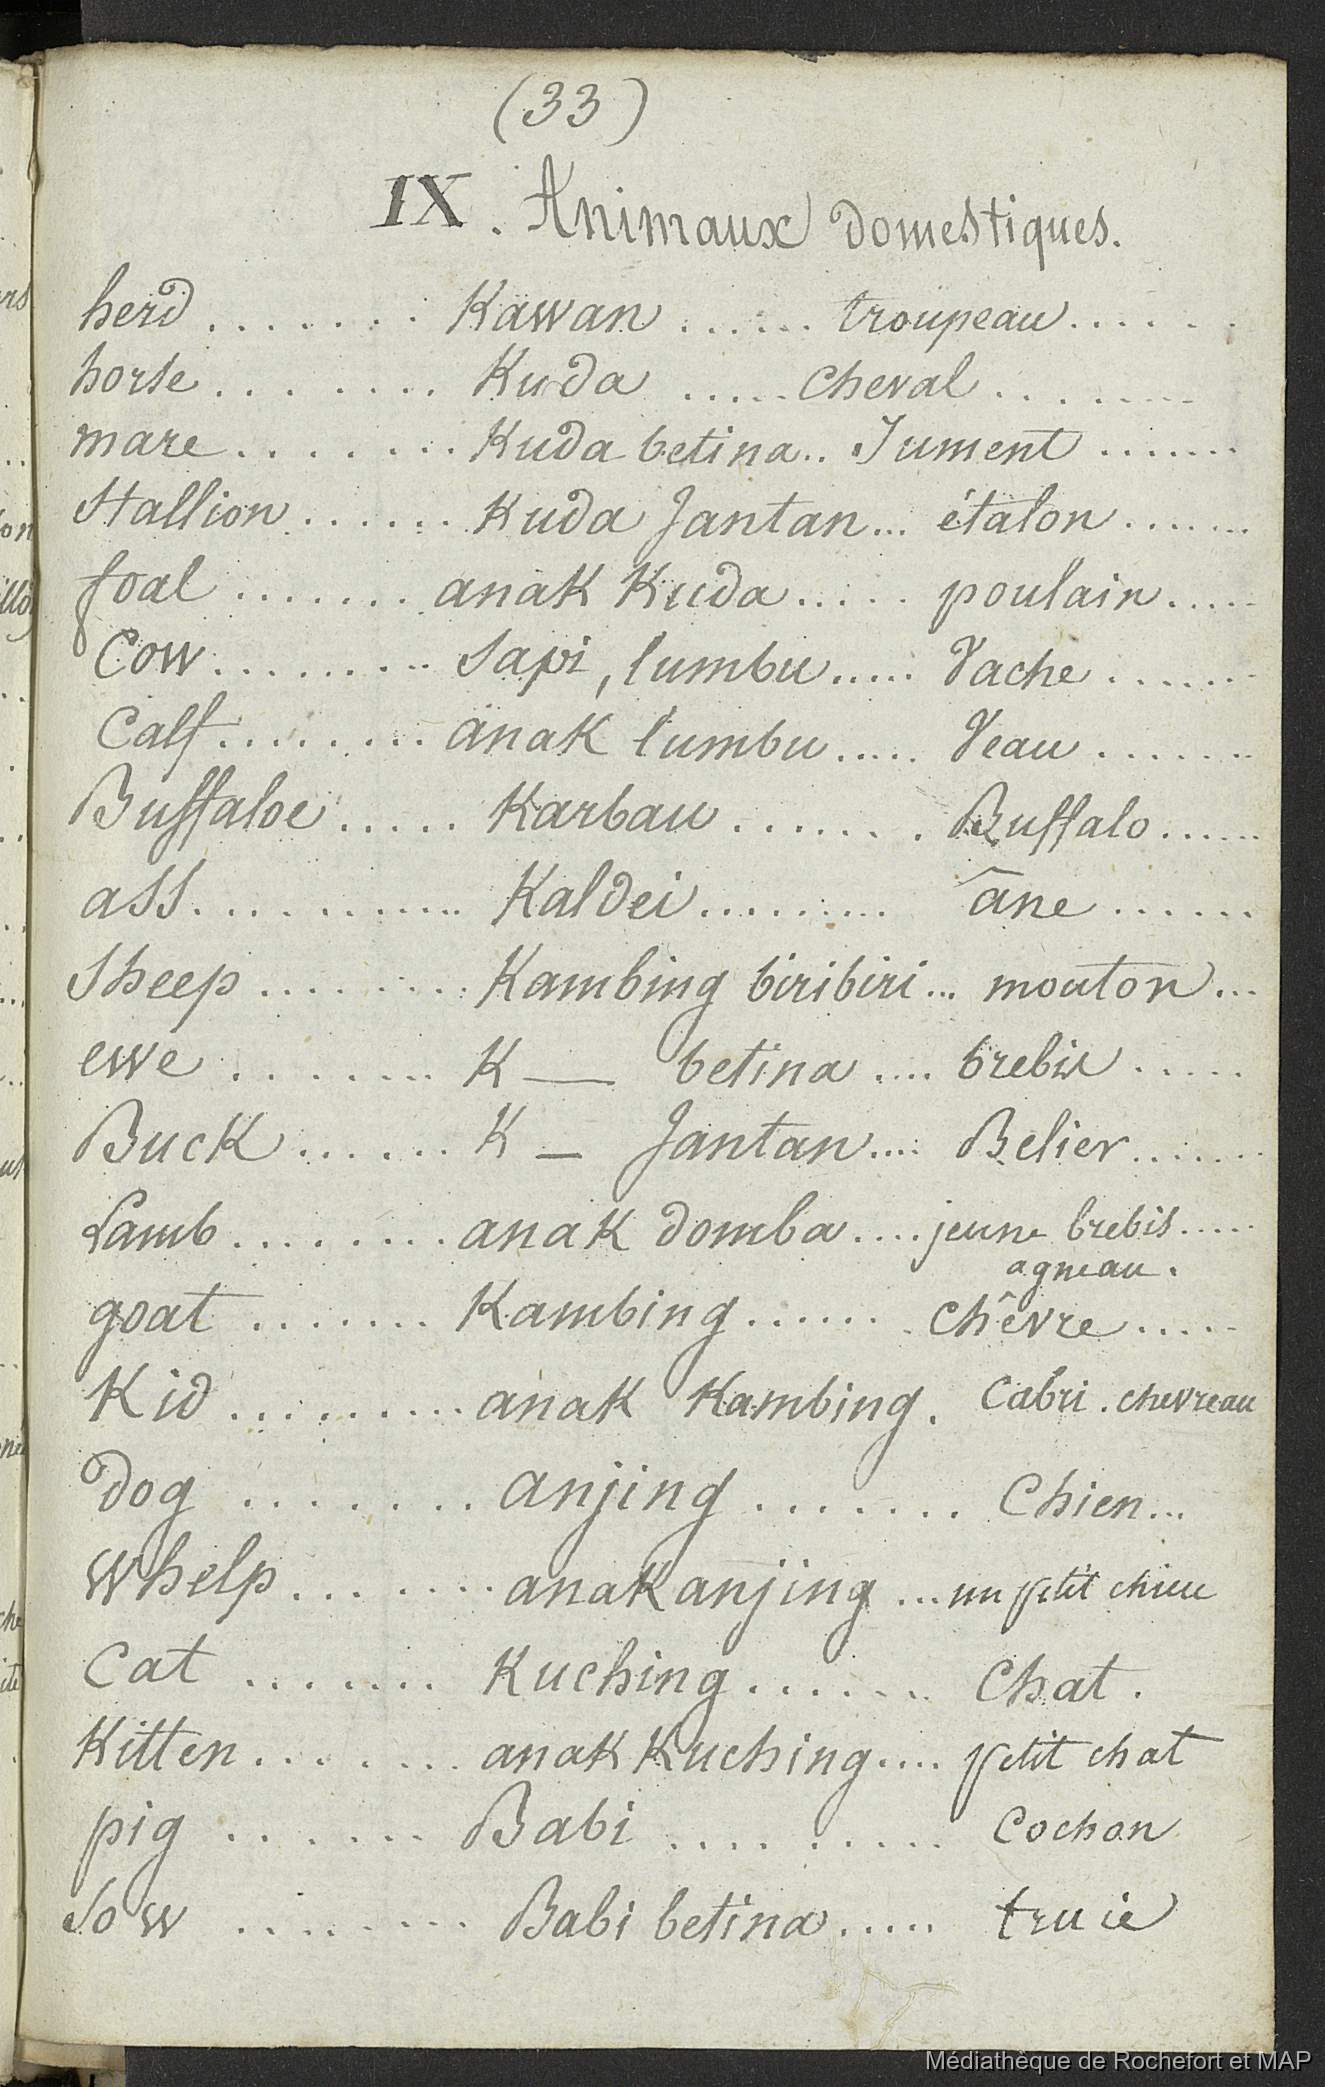 (33)
IX. Animaux domestiques.
herd ....... Kawan ...... troupeau ......
horse ....... Kuda ..... cheval .......
mare ....... Kuda betina .. Jument .......
Stallion ...... Kuda Jantan ... étalon .......
foal ....... anak Kuda ..... poulain .....
Cow ........ Sapi, lumbu ..... Vache .......
Calf ........ anak lumbu ..... Veau .......
Buffaloe ..... Karbau ....... Buffalo ......
ass .......... Kaldei ......... âne ......
Sheep ........ Kambing biribiri ... mouton ...
ewe ....... K — betina .... brebis .....
Buck ...... K — Jantan .... Belier .......
Lamb ........ anak domba .... jeune brebis .....
agneau.
goat ....... Kambing ...... chêvre .....
Kid ......... anak Kambing . Cabri . chevreau
Dog ....... anjing ....... Chien ...
Whelp ....... anak anjing ... un petit chien
Cat ....... Kuching ...... Chat .
Kitten ....... anak Kuching .... petit chat
pig ...... Babi ......... Cochon
Sow ....... Babi betina ..... truie
Médiathèque de Rochefort et MAP